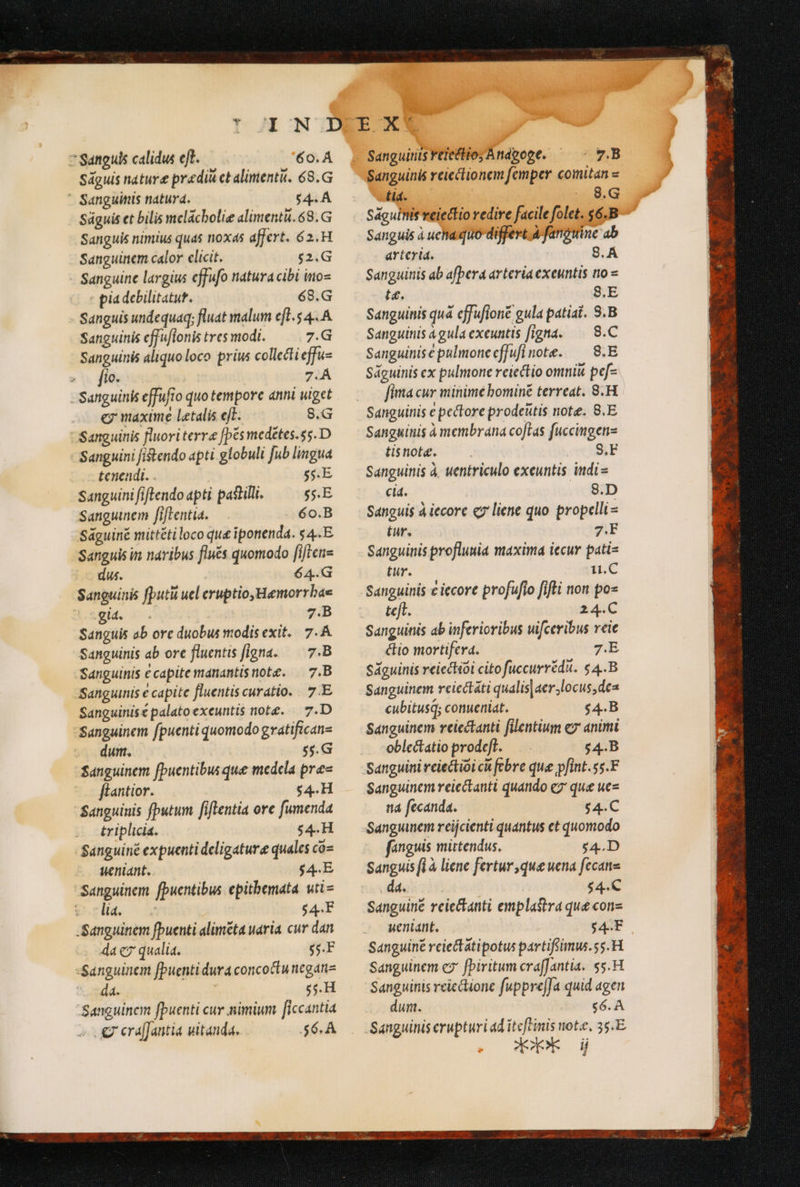 INDEX
Sanguis calidus eſt. 60.A
Sāguis naturæ prædiū et alimentū. 68.G
Sanguinis natura. 54.A
Sāguis et bilis melācholiæ alimentū. 68.G
Sanguis nimius quas noxas affert. 62.H
Sanguinem calor elicit. 52.G
Sanguine largius effuſo natura cibi ino=
pia debilitatur. 68.G
Sanguis undequaq; fluat malum eſt. 54.A
Sanguinis effuſionis tres modi. 7.G
Sanguinis aliquo loco prius collecti effu=
ſio. 7.A
Sanguinis effuſio quo tempore anni uiget
& maxime letalis eſt. 8.G
Sanguinis fluori terræ ſpēs medētes. 55.D
Sanguini ſiſtendo apti globuli ſub lingua
tenendi. 55.E
Sanguini ſiſtendo apti paſtilli. 55.E
Sanguinem ſiſtentia. 60.B
Sāguinē mittēti loco quæ īponenda. 54.E
Sanguis in naribus fluēs quomodo ſiſten=
dus. 64.G
Sanguinis ſputū uel eruptio, Hæmorrhæ
gia. 7.B
Sanguis ab ore duobus modis exit. 7.A
Sanguinis ab ore fluentis ſigna. 7.B
Sanguinis è capite manantis notæ. 7.B
Sanguinis è capite fluentis curatio. 7.E
Sanguinis è palato exeuntis notæ. 7.D
Sanguinem ſpuenti quomodo gratifican=
dum. 55.G
Sanguinem ſpuentibus quæ medela præ=
ſtantior. 54.H
Sanguinis ſputum ſiſtentia ore ſumenda
triplicia. 54.H
Sanguinē expuenti deligaturæ quales cō=
ueniant. 54.E
Sanguinem ſpuentibus epithemata uti=
lia. 54.F
Sanguinem ſpuenti alimēta uaria cur dan
da & qualia. 55.F
Sanguinem ſpuenti dura concoctu negan=
da. 55.H
Sanguinem ſpuenti cur nimium ſiccantia
& craſſantia uitanda. 56.A
Sanguinis reiectio, Anagoge. 7.B
Sanguinis reiectionem ſemper comitan=
tia. 8.G
Sāguinis reiectio redire facile ſolet. 56.B
Sanguis à uena quo differt à ſanguine ab
arteria. 8.A
Sanguinis ab aſpera arteria exeuntis no=
tæ. 8.E
Sanguinis quā effuſionē gula patiat̃. 8.B
Sanguinis à gula exeuntis ſigna. 8.C
Sanguinis è pulmone effuſi notæ. 8.E
Sāguinis ex pulmone reiectio omniū peſ=
ſima cur minime hominē terreat. 8.H
Sanguinis è pectore prodeūtis notæ. 8.E
Sanguinis à membrana coſtas ſuccingen=
tis notæ. 8.F
Sanguinis à uentriculo exeuntis indi=
cia. 8.D
Sanguis à iecore & liene quo propelli=
tur. 7.F
Sanguinis profluuia maxima iecur pati=
tur. 11.C
Sanguinis è iecore profuſio ſiſti non po=
teſt. 24.C
Sanguinis ab inferioribus uiſceribus reie
ctio mortifera. 7.E
Sāguinis reiectiōi cito ſuccurrēdū. 54.B
Sanguinem reiectāti qualis aer, locus, de=
cubitusq; conueniat. 54.B
Sanguinem reiectanti ſilentium & animi
oblectatio prodeſt. 54.B
Sanguini reiectiōi cū febre quæ pſint. 55.F
Sanguinem reiectanti quando & quæ ue=
na ſecanda. 54.C
Sanguinem reijcienti quantus et quomodo
ſanguis mittendus. 54.D
Sanguis ſi à liene fertur, quæ uena ſecan=
da. 54.C
Sanguinē reiectanti emplaſtra quæ con=
ueniant. 54.F
Sanguinē reiectāti potus partiſsimus. 55.H
Sanguinem & ſpiritum craſſantia. 55.H
Sanguinis reiectione ſuppreſſa quid agen
dum. 56.A
Sanguinis erupturi ad īteſtinis notæ. 35.E
*** ij